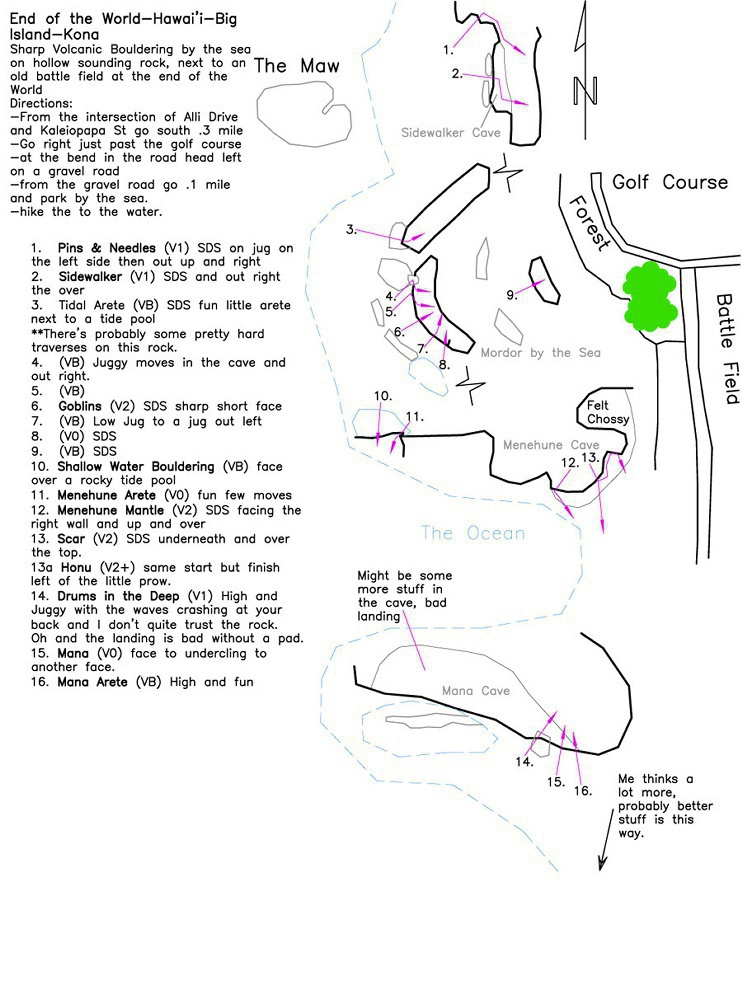 End of the World—Hawai'i—Big
Island—Kona
Sharp Volcanic Bouldering by the sea
on hollow sounding rock, next to an
old battle field at the end of the
World
Directions:
—From the intersection of Alli Drive
and Kaleiopapa St go south .3 mile
—Go right just past the golf course
—at the bend in the road head left
on a gravel road
—from the gravel road go .1 mile
and park by the sea.
—hike the to the water.
1. Pins & Needles (V1) SDS on jug on
the left side then out up and right
2. Sidewalker (V1) SDS and out right
the over
3. Tidal Arete (VB) SDS fun little arete
next to a tide pool
**There's probably some pretty hard
traverses on this rock.
4. (VB) Juggy moves in the cave and
out right.
5. (VB)
6. Goblins (V2) SDS sharp short face
7. (VB) Low Jug to a jug out left
8. (V0) SDS
9. (VB) SDS
10. Shallow Water Bouldering (VB) face
over a rocky tide pool
11. Menehune Arete (V0) fun few moves
12. Menehune Mantle (V2) SDS facing the
right wall and up and over
13. Scar (V2) SDS underneath and over
the top.
13a Honu (V2+) same start but finish
left of the little prow.
14. Drums in the Deep (V1) High and
Juggy with the waves crashing at your
back and I don't quite trust the rock.
Oh and the landing is bad without a pad.
15. Mana (V0) face to undercling to
another face.
16. Mana Arete (VB) High and fun
The Maw
1.
2.
Sidewalker Cave
N
Golf Course
Forest
3.
4.
5.
6.
7.
8.
9.
Mordor by the Sea
Battle Field
10.
11.
Felt
Chossy
Menehune Cave
12.
13.
The Ocean
Might be some
more stuff in
the cave, bad
landing
Mana Cave
14.
15.
16.
Me thinks a
lot more,
probably better
stuff is this
way.